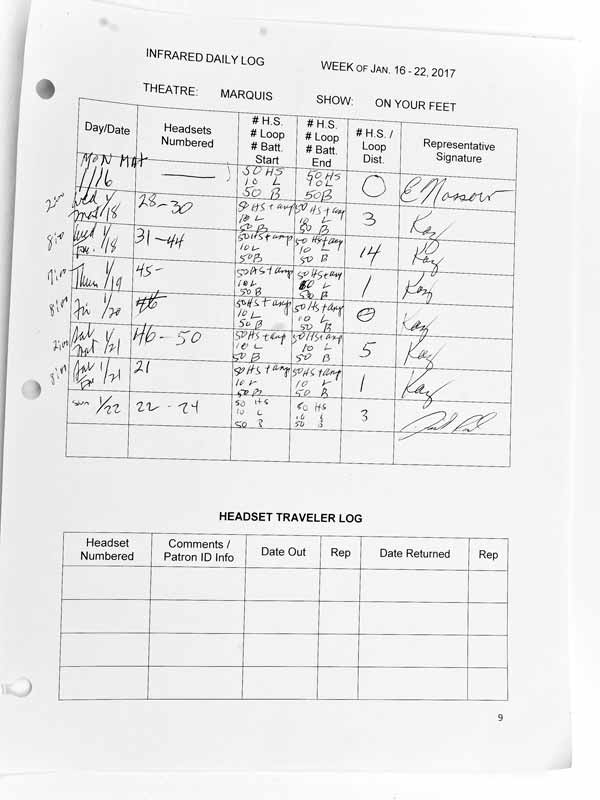 INFRARED DAILY LOG WEEK OF JAN. 16 - 22, 2017
THEATRE: MARQUIS SHOW: ON YOUR FEET
Day/Date
Headsets
Numbered
# H.S.
# Loop
# Batt.
Start
# H.S.
# Loop
# Batt.
End
# H.S. /
Loop
Dist.
Representative
Signature
MON MAT
1/16
50 HS
10 L
50 B
50 HS
10 L
50 B
0
2:00 Wed 1/18
mat
28-30
50 HS + amp
10 L
50 B
50 HS + amp
10 L
50 B
3
Kay
8:00 Wed 1/18
Eve.
31-44
50 HS + amp
10 L
50 B
50 HS + amp
10 L
50 B
14
Kay
Thurs 1/19
45-
50 HS + amp
10 L
50 B
50 HS + amp
10 L
50 B
1
Kay
8:00 Fri 1/20
46
50 HS + amp
10 L
50 B
50 HS + amp
10 L
50 B
0
Kay
2:00 Sat 1/21
mat
46-50
50 HS + amp
10 L
50 B
50 HS + amp
10 L
50 B
5
Kay
8:00 Sat 1/21
Eve
21
50 HS + amp
10 L
50 B
50 HS + amp
10 L
50 B
1
Kay
sun 1/22
22-24
50 HS
10 L
50 B
50 HS
10 L
50 B
3
HEADSET TRAVELER LOG
Headset
Numbered
Comments /
Patron ID Info
Date Out
Rep
Date Returned
Rep
9